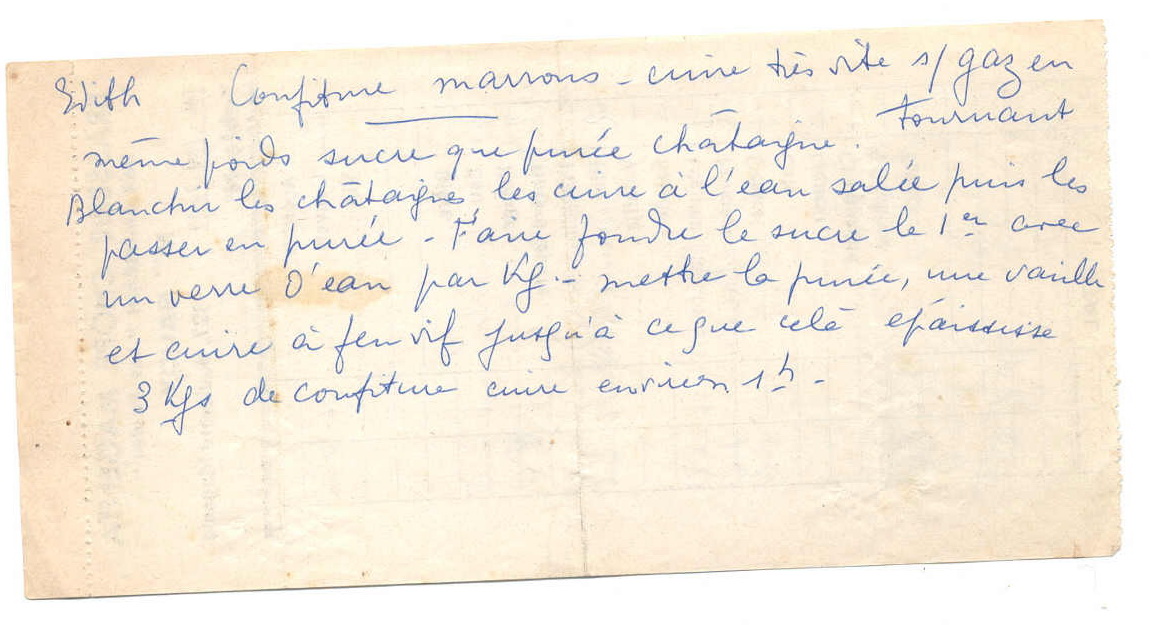 Edith Confiture marrons - cuire très vite s/ gaz en
tournant
même poids sucre que purée châtaigne.
Blanchir les châtaignes, les cuire à l'eau salée puis les
passer en purée - Faire fondre le sucre le 1er avec
un verre d'eau par Kg. - mettre la purée, une vanille
et cuire à feu vif jusqu'à ce que celà épaississe
3 Kgs de confiture cuire environ 1h -